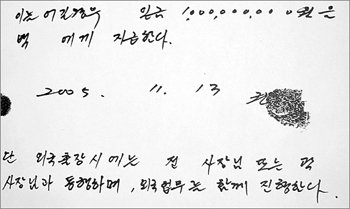 이는 어김없이 일금 1,000,000,000원을
백 에게 지급한다.
2005. 11. 13
단 외국출장시에는 전 사장님 또는 곽
사장님과 동행하며, 외국업무는 함께 진행한다.